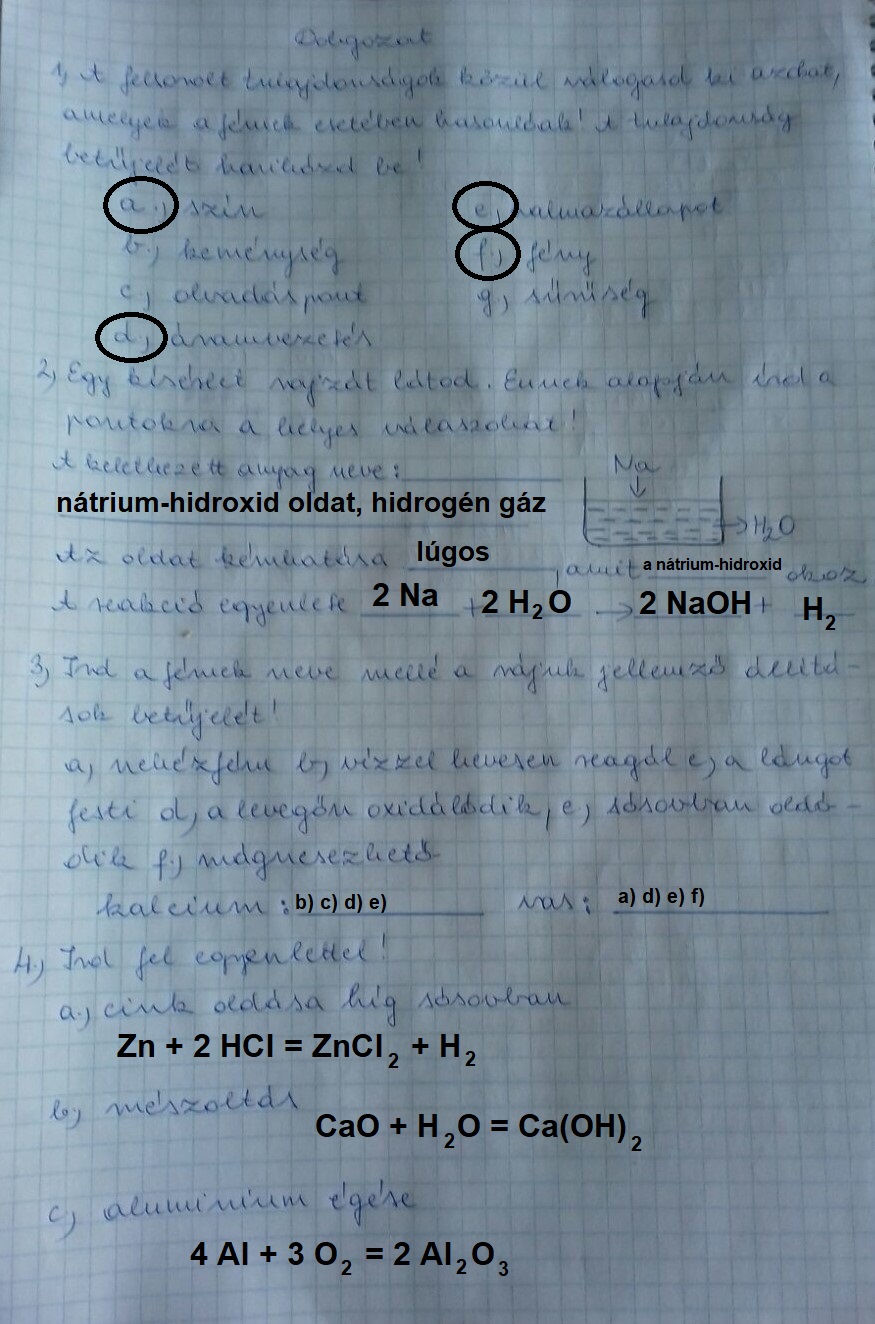 Dolgozat
1, A felsorolt tulajdonságok közül válogasd ki azokat,
amelyek a fémek esetében hasonlóak! A tulajdonság
betűjelét karikázd be!
a., szín e, halmazállapot
b., keménység f., fény
c, olvadáspont g, sűrűség
d., áramvezetés
2, Egy kísérlet rajzát látod. Ennek alapján írd a
pontokra a helyes válaszokat!
A keletkezett anyag neve:
Na
nátrium-hidroxid oldat, hidrogén gáz
H2O
Az oldat kémhatása lúgos, amit a nátrium-hidroxid okoz
A reakció egyenlete 2 Na + 2 H₂O → 2 NaOH + H₂
3, Írd a fémek neve mellé a rájuk jellemző állítá-
sok betűjelét!
a, nehézfém b, vízzel hevesen reagál c, a lángot
festi d, a levegőn oxidálódik, e, sósavban oldó-
dik f., mágnesezhető
kalcium: b) c) d) e) vas: a) d) e) f)
4., Írd fel egyenlettel!
a., cink oldása híg sósavban
Zn + 2 HCl = ZnCl₂ + H₂
b, mészoltás
CaO + H₂O = Ca(OH)₂
c, aluminium égése
4 Al + 3 O₂ = 2 Al₂O₃